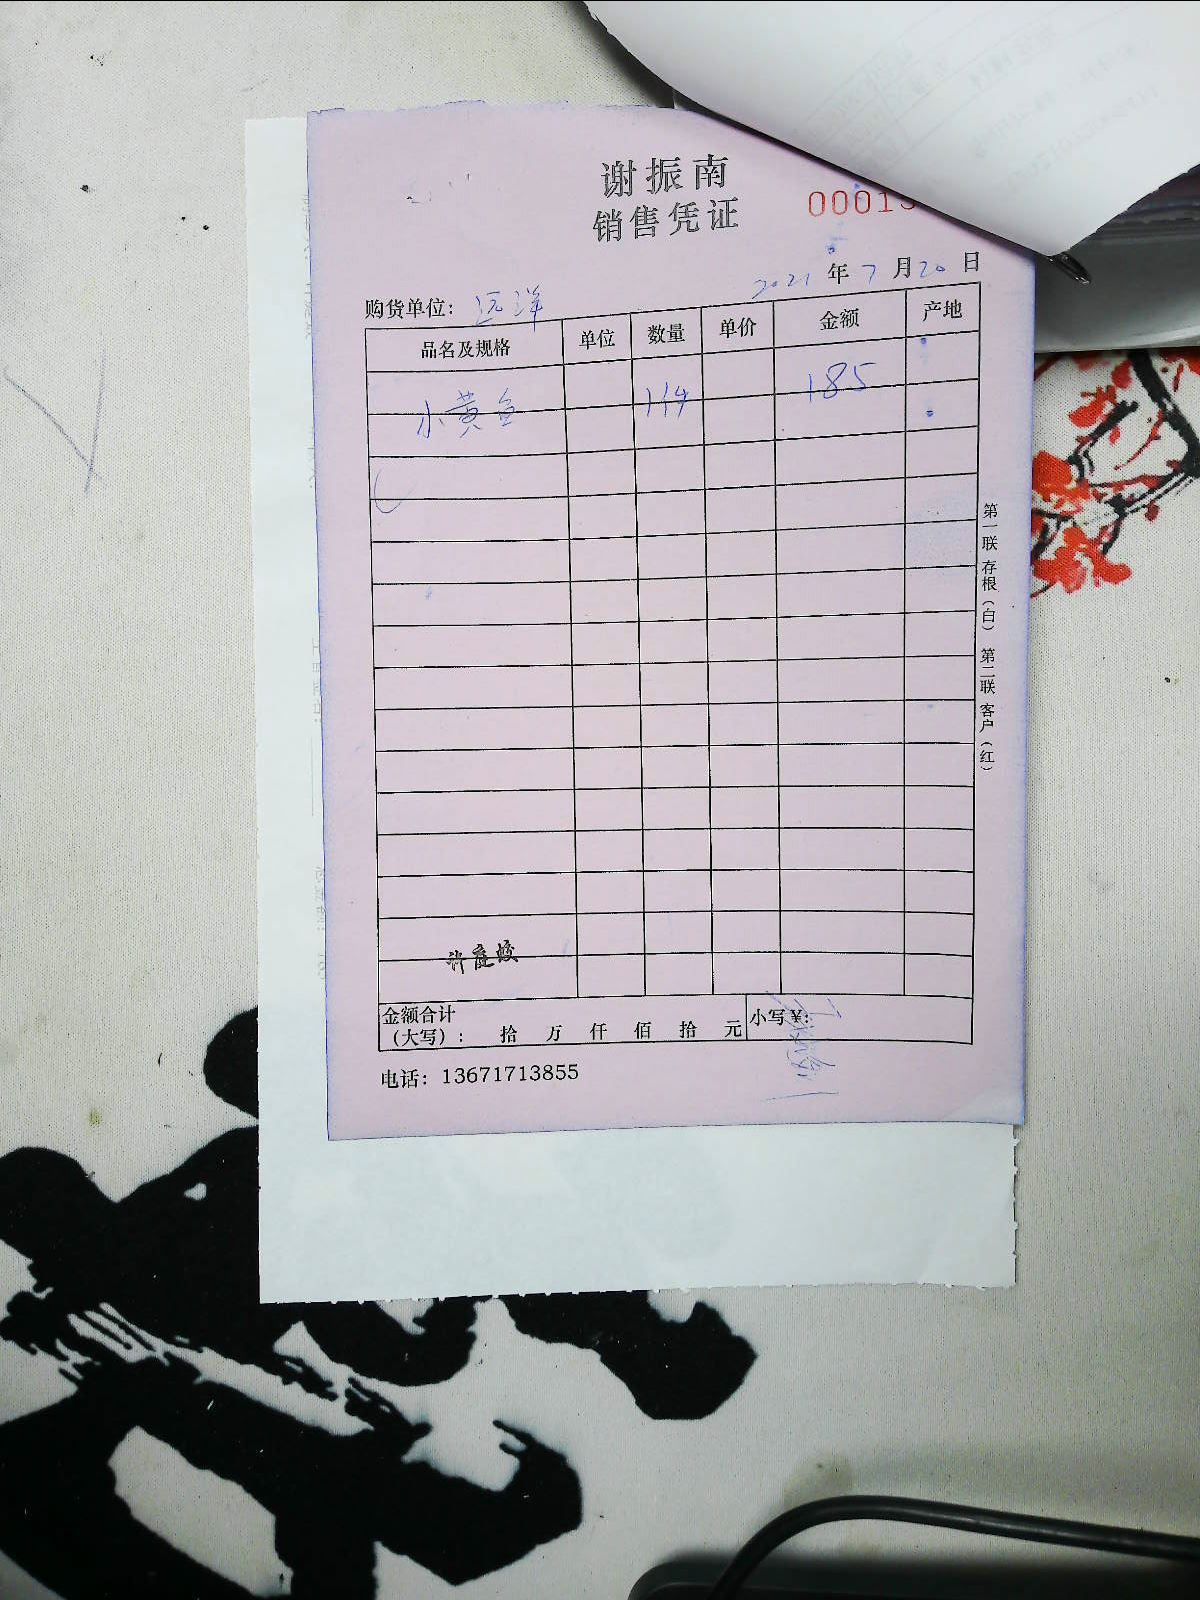 谢振南
销售凭证
00013
2021年7月20日
购货单位：远洋
品名及规格 单位 数量 单价 金额 产地
小黄鱼 1件 185
第一联 存根（白） 第二联 客户（红）
许庭蛟
金额合计
（大写）： 拾 万 仟 佰 拾 元 小写¥：
电话：13671713855